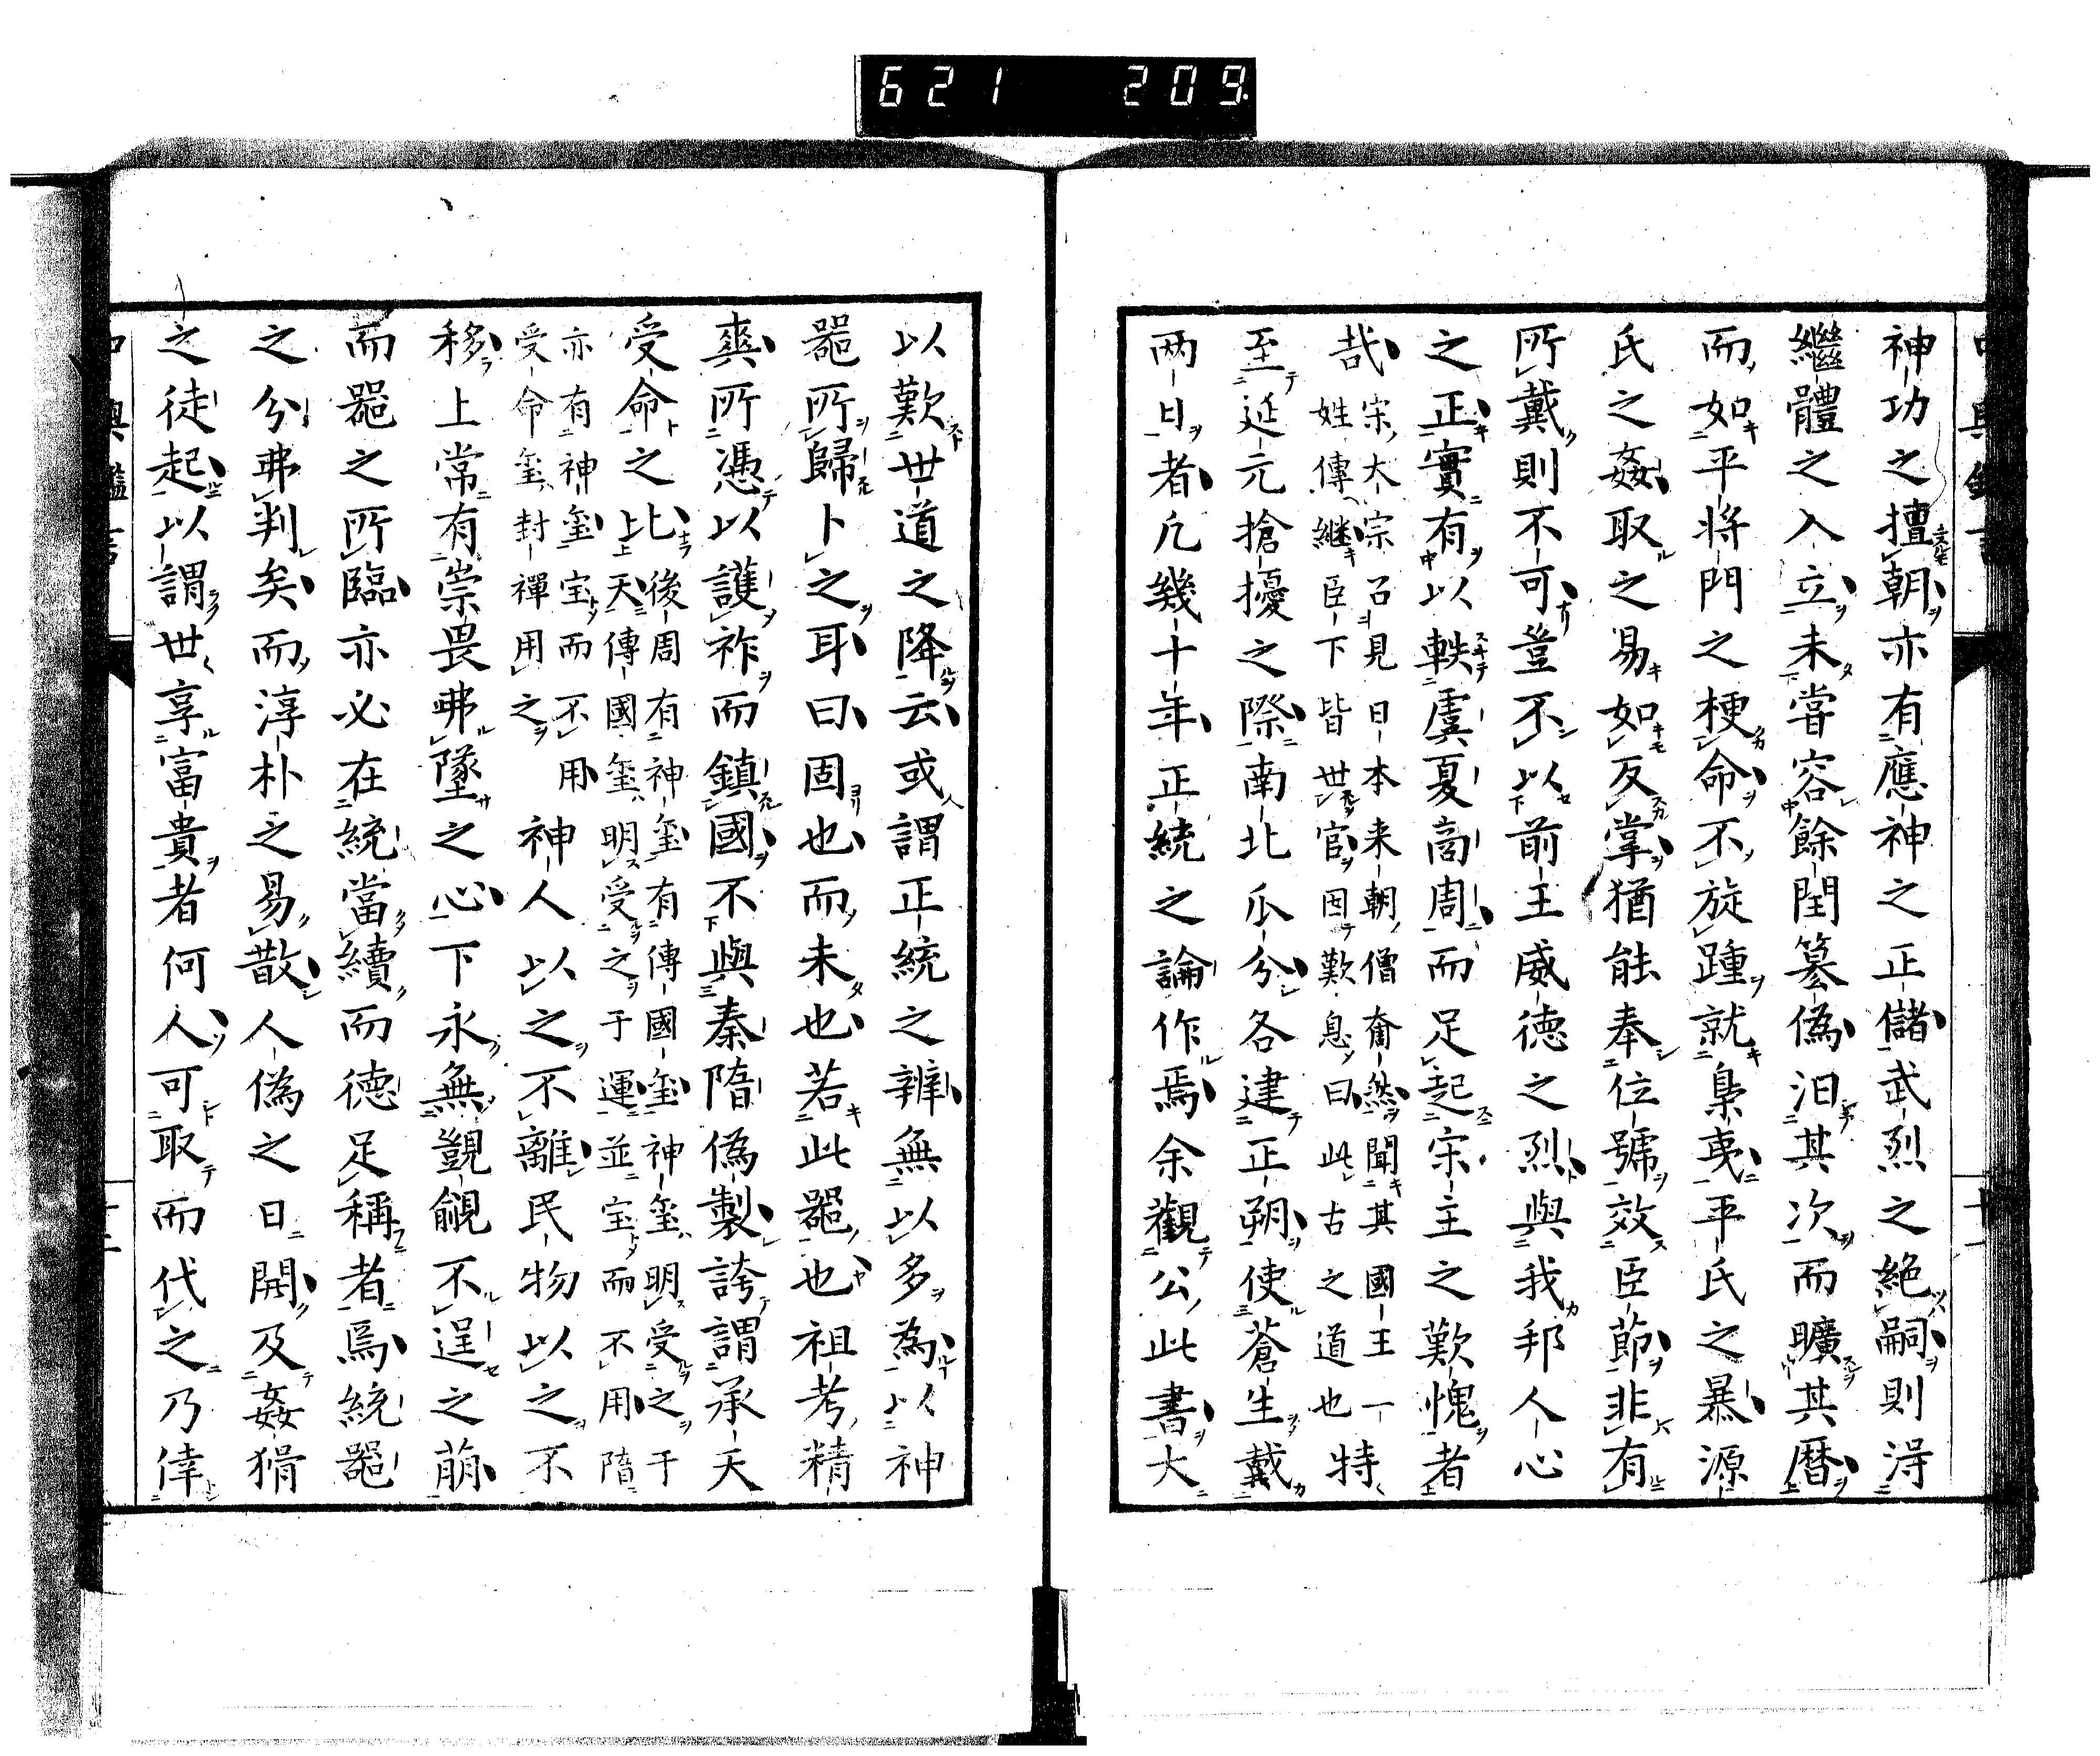 621 209
神功之擅朝亦有應神之正儲武烈之絶嗣則淂
繼體之入立未甞容餘閏簒偽汨其次而曠其暦
而如平將門之梗命不旋踵就梟夷平氏之暴源
氏之姦取之易如反掌猶能奉位號效臣節非有
所戴則不可豈不以前王威德之烈與我邦人心
之正實有以軼虞夏商周而足起宋主之歎愧者
哉
宋大宗召見日本来朝僧奝然聞其國王一
姓傳継臣下皆世官因歎息曰此古之道也
特
至延元搶擾之際南北瓜分各建正朔使蒼生戴
两日者凢幾十年正統之論作焉余觀公此書大
以歎世道之降云或謂正統之辨無以多為以神
噐所歸卜之耳曰固也而未也若此噐也祖考精
爽所憑以護祚而鎮國不與秦隋偽製誇謂承天
受命之比
後周有神璽有傳國璽神璽明受之于
天傳國璽明受之于運並宝而不用隋
亦有神璽宝而不用
受命璽封禪用之
神人以之不離民物以之不
移上常有崇畏弗墜之心下永無覬覦不逞之萠
而噐之所臨亦必在統當續而德足稱者焉統噐
之分弗判矣而淳朴之易散人偽之日開及姦猾
之徒起以謂世享富貴者何人可取而代之乃倖